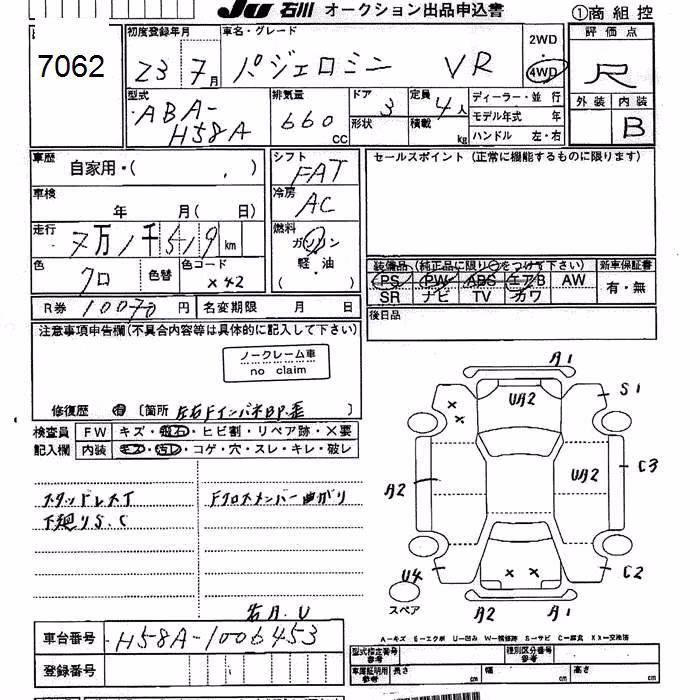 JU 石川 オークション出品申込書 ①商組控
7062
初度登録年月 車名・グレード 2WD ・ 4WD 評価点
23 7月 パジェロミニ VR R
型式 排気量 ドア 定員 ディーラー・並行 外装 内装
ABA-H58A 660 CC 3 4人 モデル年式 年 B
形状 積載 kg ハンドル 左・右
車歴 自家用・( ) シフト FAT セールスポイント(正常に機能するものに限ります)
車検 年 月( 日) 冷房 AC
走行 7万1千519km 燃料 ガソリン 軽・油 ( )
色 クロ 色替 色コード X42
装備品(純正品に限り○をつけて下さい) 新車保証書
PS PW ABS エアB AW 有・無
SR ナビ TV カワ
R券 10070円 名変期限 月 日 後日品
注意事項申告欄(不具合内容等は具体的に記入して下さい)
ノークレーム車
no claim
修復歴 有 〔箇所 左右FインパネBP歪 〕
検査員 FW キズ・飛石・ヒビ割・リペア跡・×要
記入欄 内装 キズ・汚レ・コゲ・穴・スレ・キレ・破レ
スタッドレスT Fクロスメンバー曲がり
下廻りS.C
右A.U
A1
UA2 S1
A2 UA2 C3
U4 C2
スペア A2 A1
A-キズ E-エクボ U-凹み W-補修跡 S-サビ C-腐食 XX-交換済
車台番号 H58A-1006453
登録番号
型式指定番号 参考 種別区分番号 参考
車庫証明用 参考 長さ cm 幅 cm 高さ cm